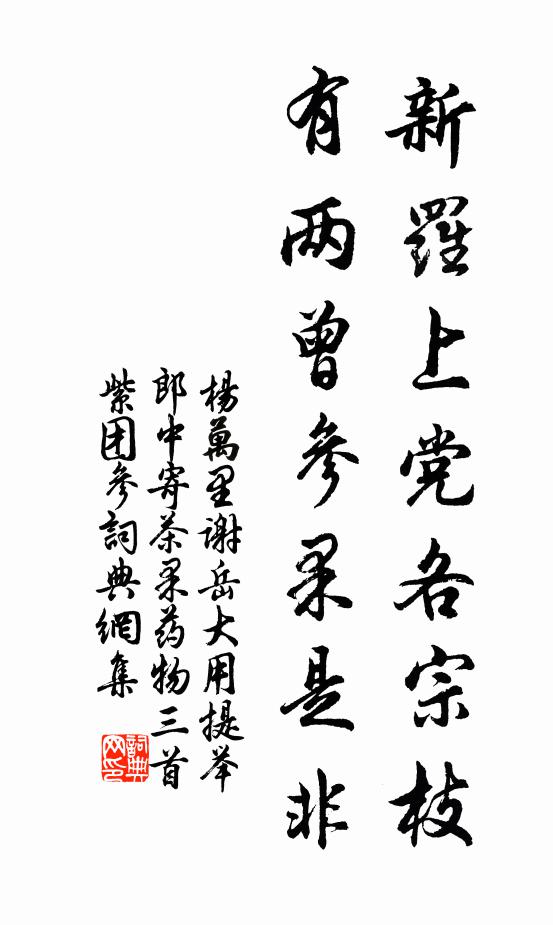 新羅上党各宗枝
有两曾參果是非
楊萬里谢岳大用提举
郎中寄茶果药物三首
紫团參詞典網集
詞典网印